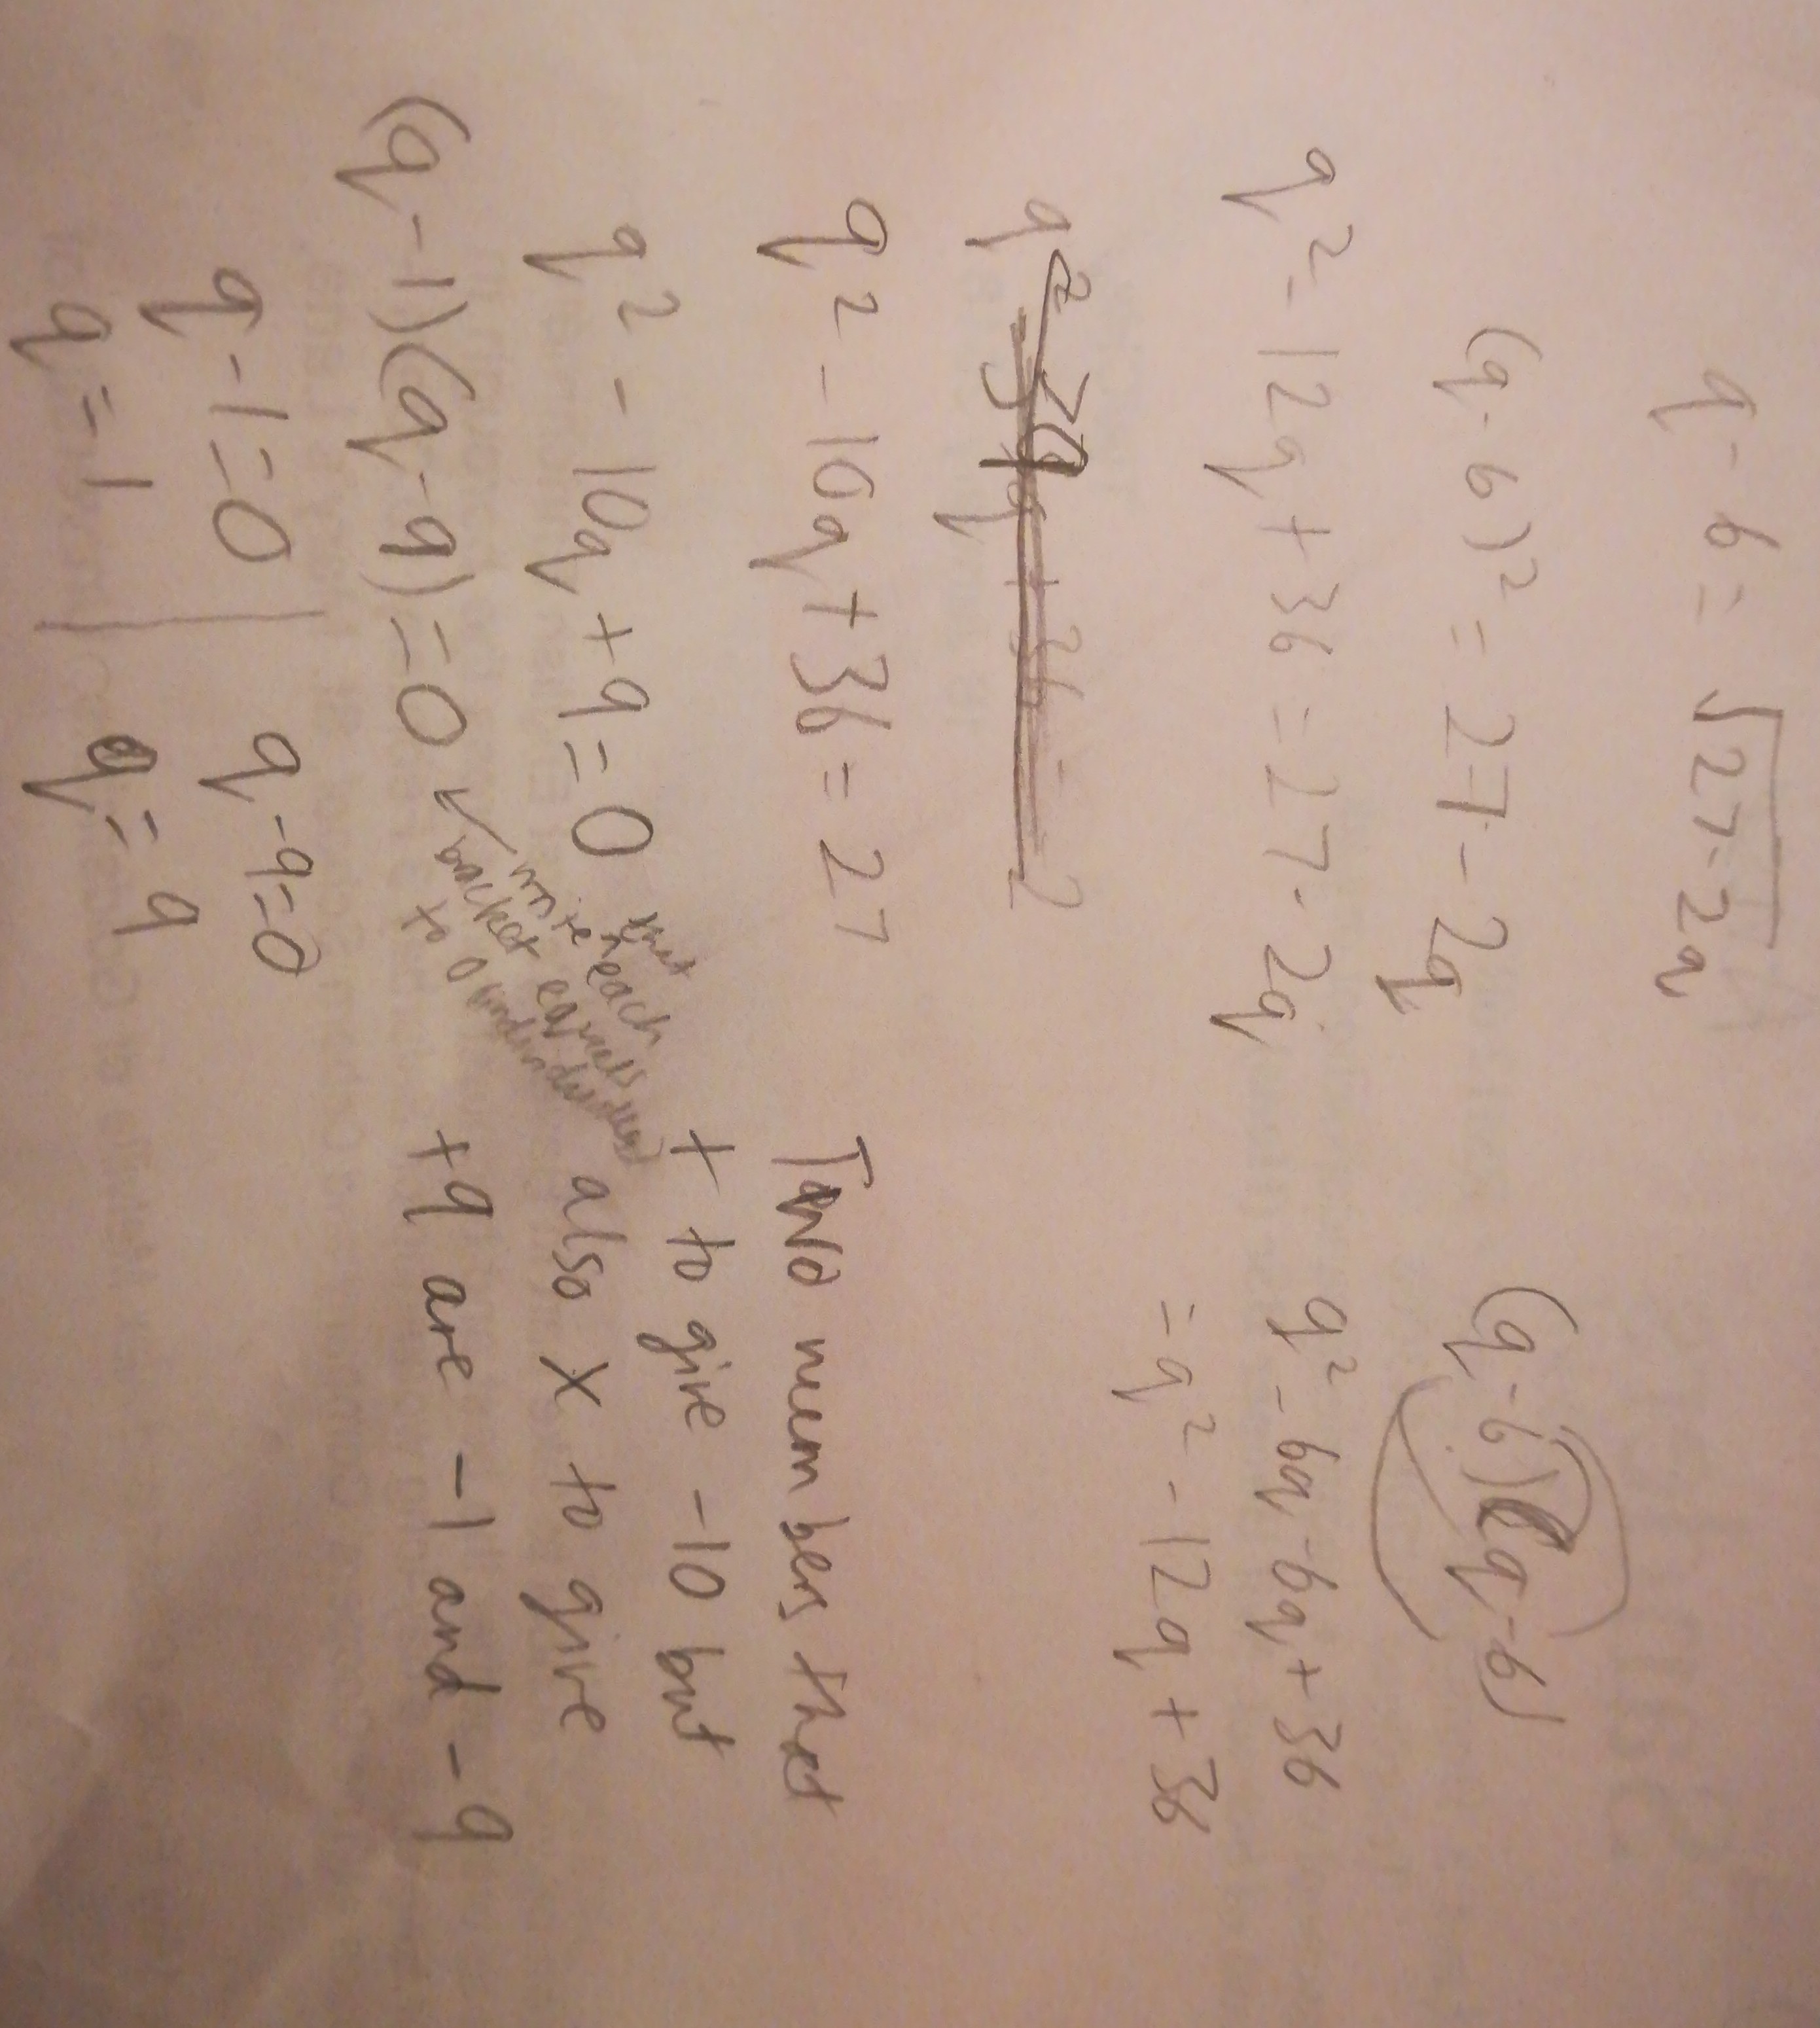 q - 6 = √27-2q
(q-6)² = 27-2q
q² - 12q + 36 = 27-2q
q² - 10q + 36 = 27
q² - 10q + 9 = 0
(q-1)(q-9)=0
q-1=0
q=1
q-9=0
q=9
(q-6)(q-6)
q²-6q-6q+36
=q²-12q+36
Two numbers that
+ to give -10 but
also x to give
+9 are -1 and -9
write that each
bracket equals
to 0